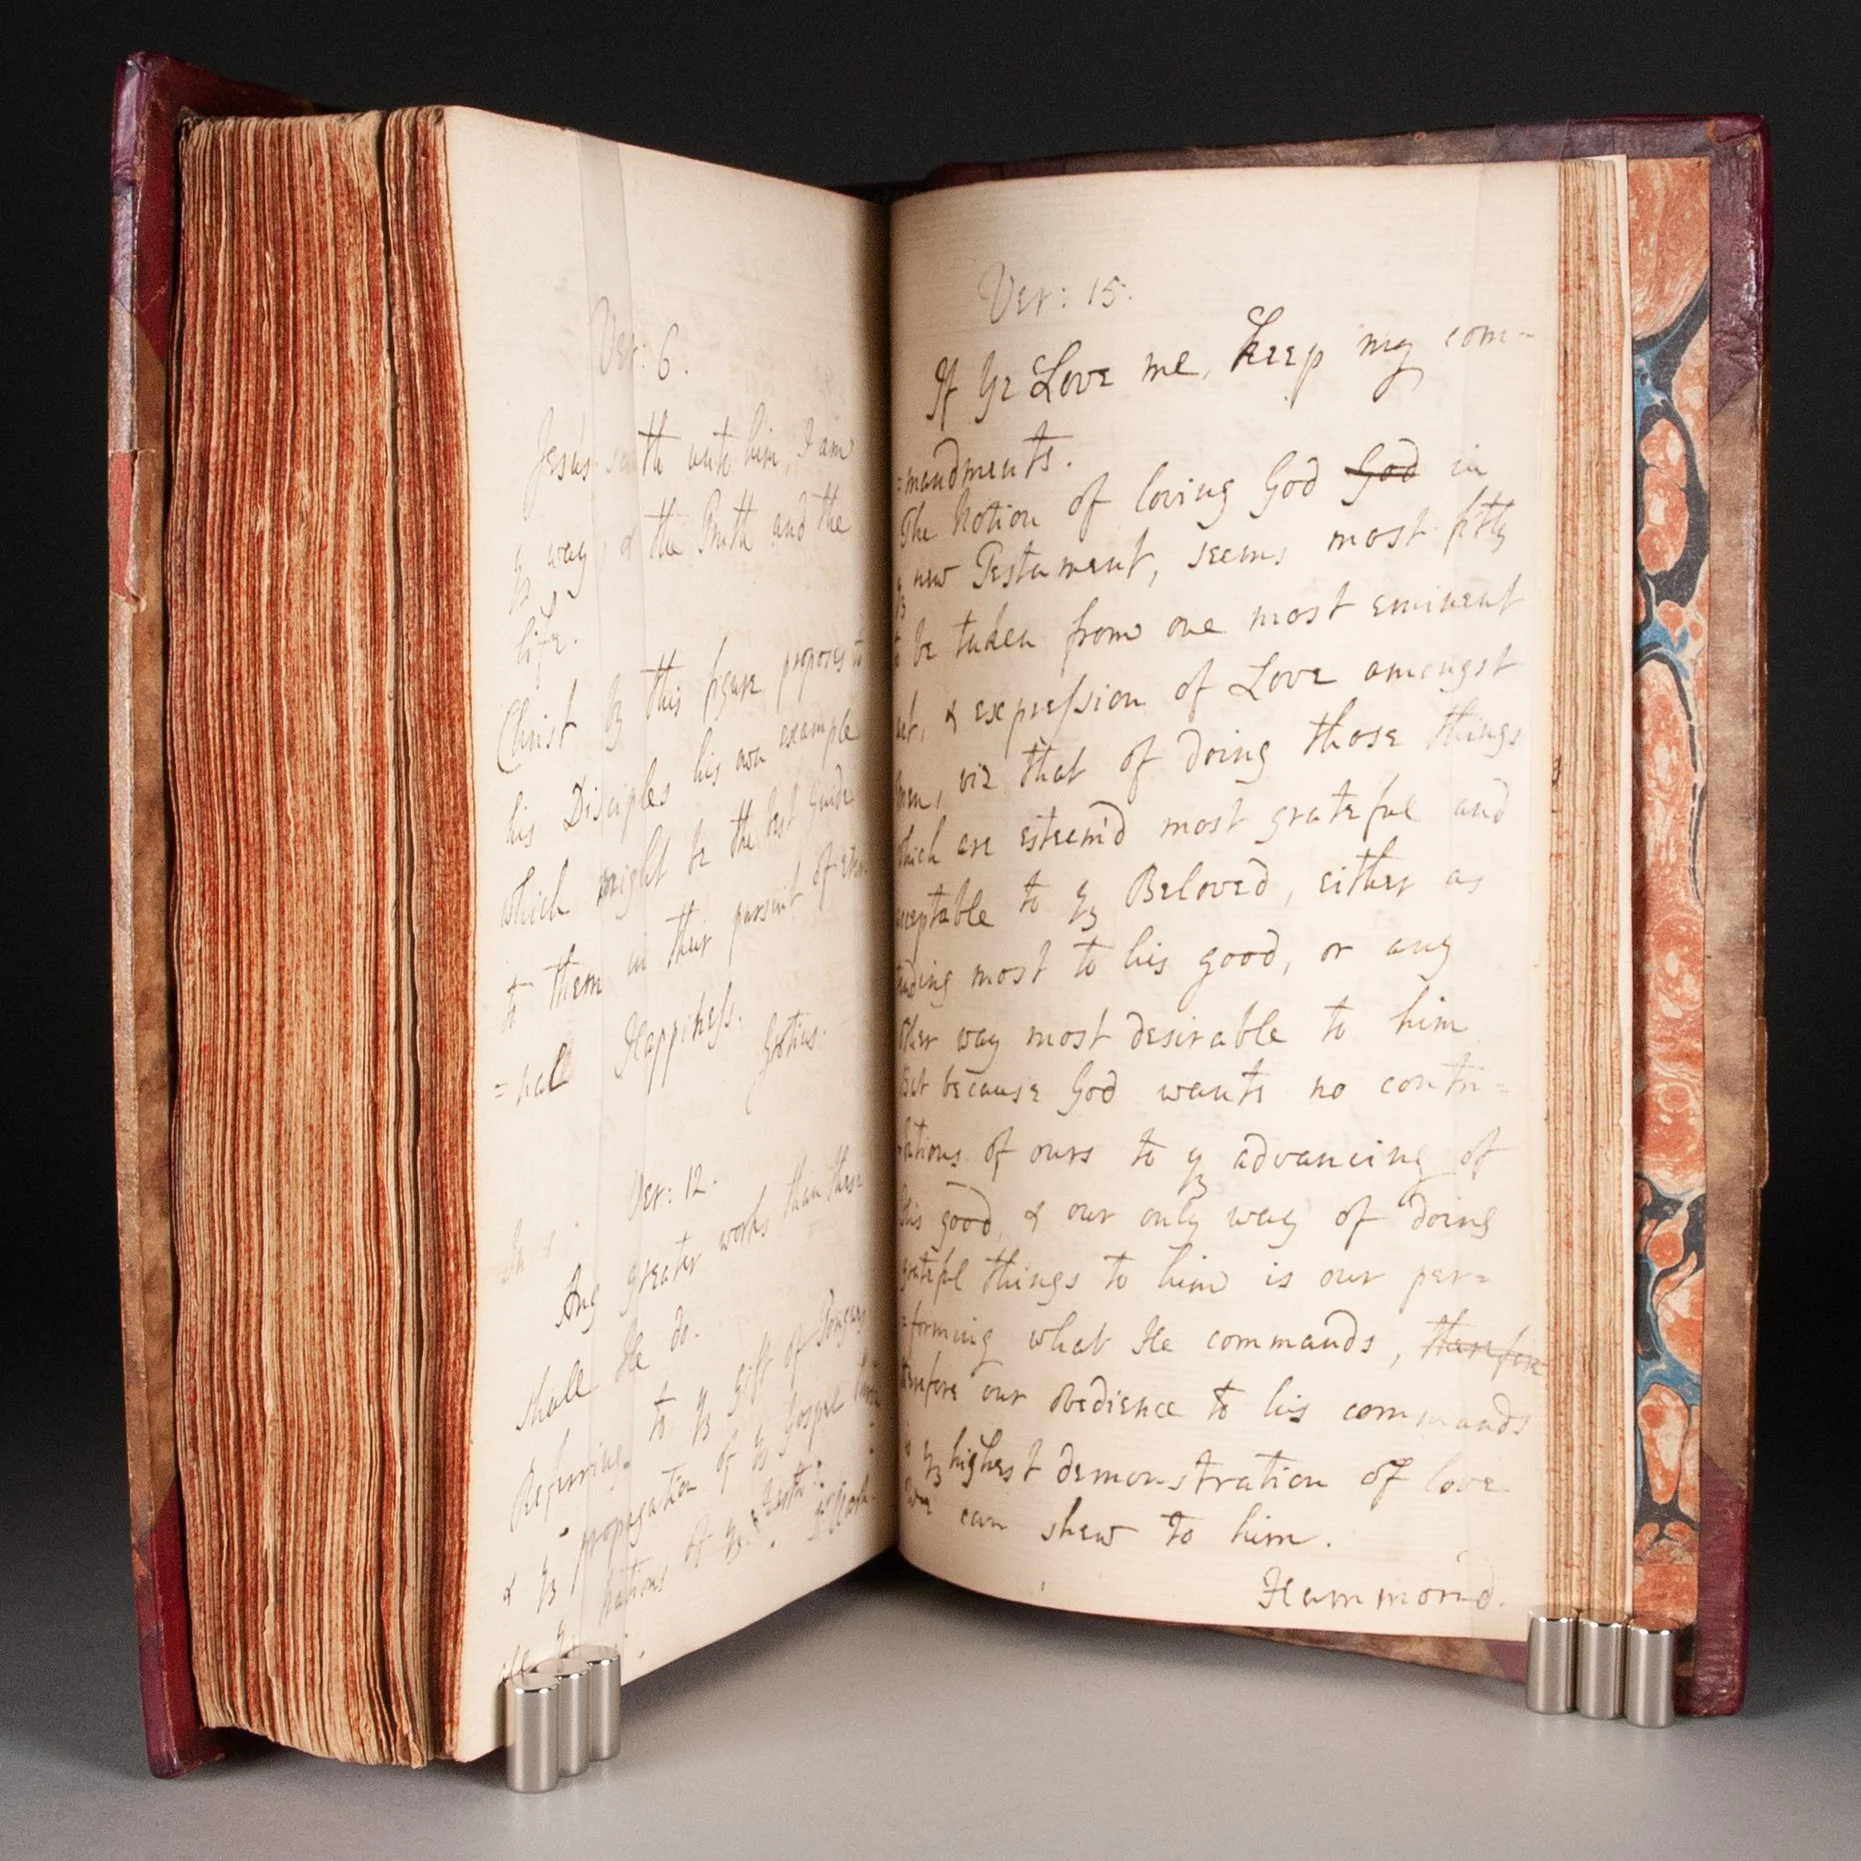 Ver: 6.
Jesus saith unto him, I am
ye way, & the Truth and the
life.
Christ by this figure proposes to
his Disciples his own example
which might be the best Guide
to them in their pursuit of
=nall Happiness.
Grotius.
Ver: 12.
Any greater works than these
shall He do.
Referring to ye Gift of Tongues
& ye propagation of ye Gospel
all ye nations of ye Earth.
Ver: 15.
If Ye Love me, Keep my com=
=mandments.
The Notion of loving God God in
ye new Testament, seems most fitly
to be taken from one most eminent
act, & expression of Love amongst
men, viz that of doing those things
which are esteem'd most grateful and
acceptable to ye Beloved, either as
tending most to his good, or any
other way most desirable to him
But because God wants no contri=
=butions of ours to ye advancing of
his good, & our only way of doing
gratefl things to him is our per=
=forming what He commands, therefore
therefore our obedience to his commands
is ye highest demonstration of love
we can shew to him.
Hammond.